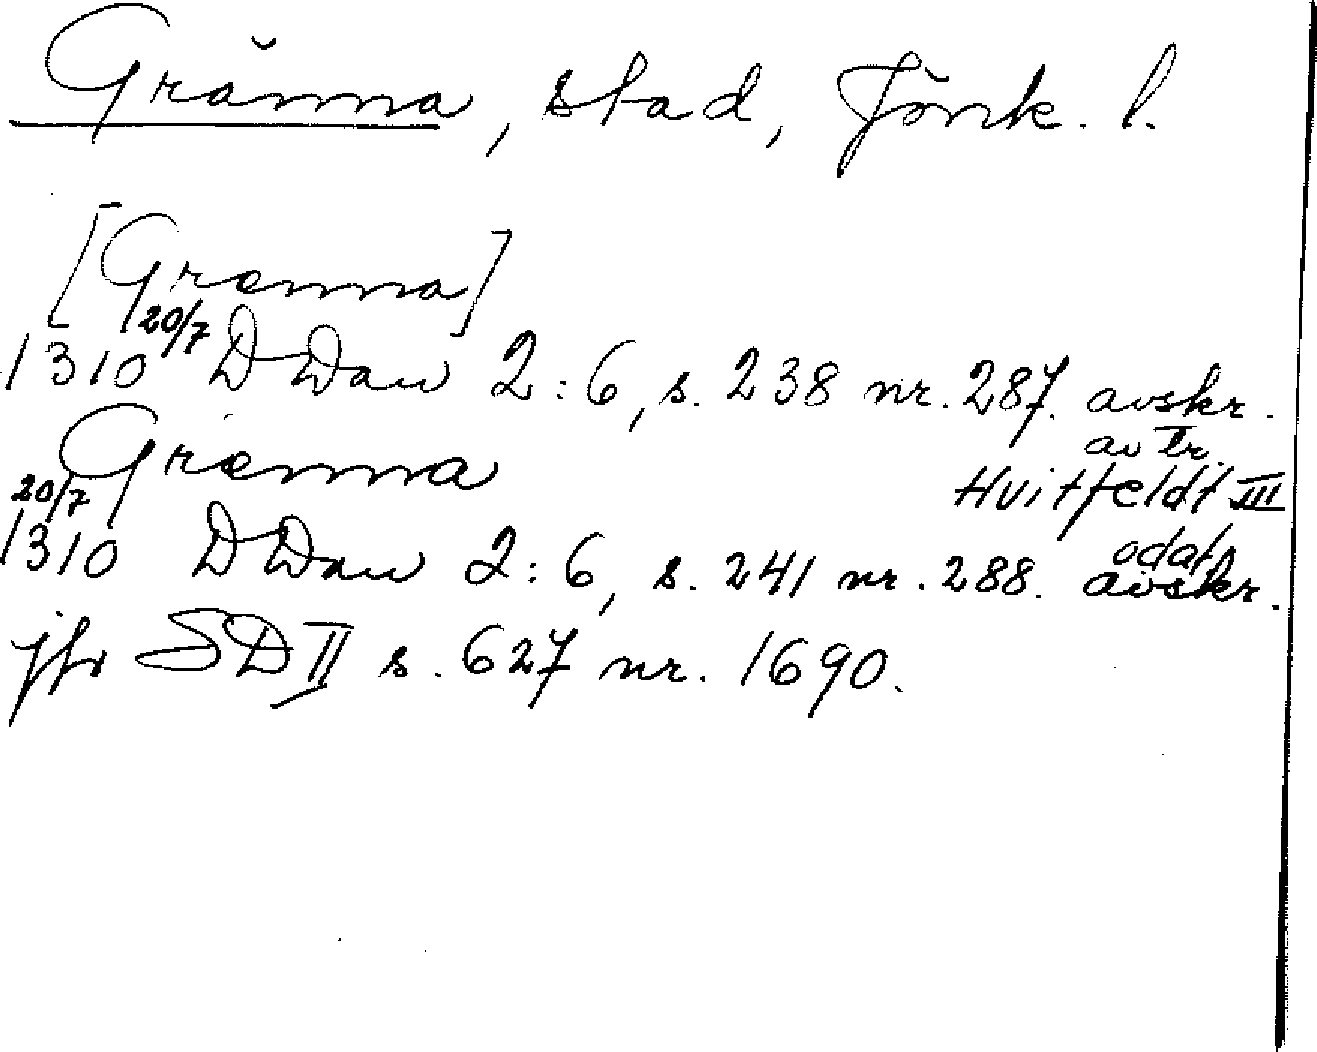 Gränna, stad, Jönk. l.
[Grænna]
1310 20/7 DDan 2:6, s. 238 nr. 287. avskr.
av tr.
Hvitfeldt III
Grænna
20/7
1310 DDan 2:6, s. 241 nr. 288. odat. avskr.
jfr SD II s. 627 nr. 1690.